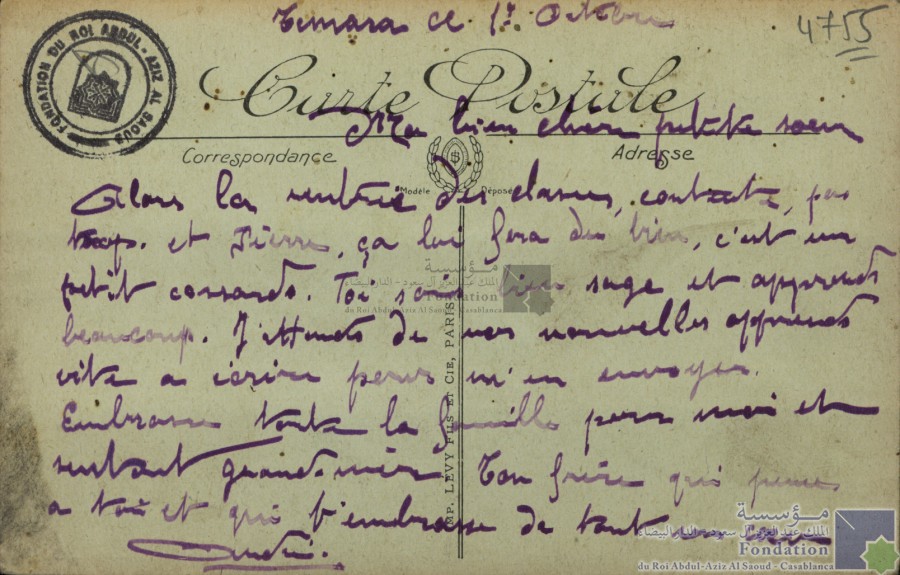 Temara ce 1er Octobre
4755
FONDATION DU ROI ABDUL-AZIZ AL SAOUD
Carte Postale
Ma bien chère petite sœur
Correspondance
Adresse
Modèle Déposé
Alors la rentrée des classes, contente, pas
trop. et Pierre, ça lui fera du bien, c'est un
petit cossard. Toi sois bien sage et apprends
beaucoup. J'attends de vos nouvelles apprends
vite a écrire pour m'en envoyer.
Embrasse toute la famille pour moi et
surtout grand-mère Ton frère qui pense
a toi et qui t'embrasse de tout
André.
IMP. LEVY FILS ET CIE, PARIS
مؤسسة
الملك عبد العزيز آل سعود - الدار البيضاء
Fondation
du Roi Abdul-Aziz Al Saoud - Casablanca
مؤسسة
الملك عبد العزيز آل سعود - الدار البيضاء
Fondation
du Roi Abdul-Aziz Al Saoud - Casablanca